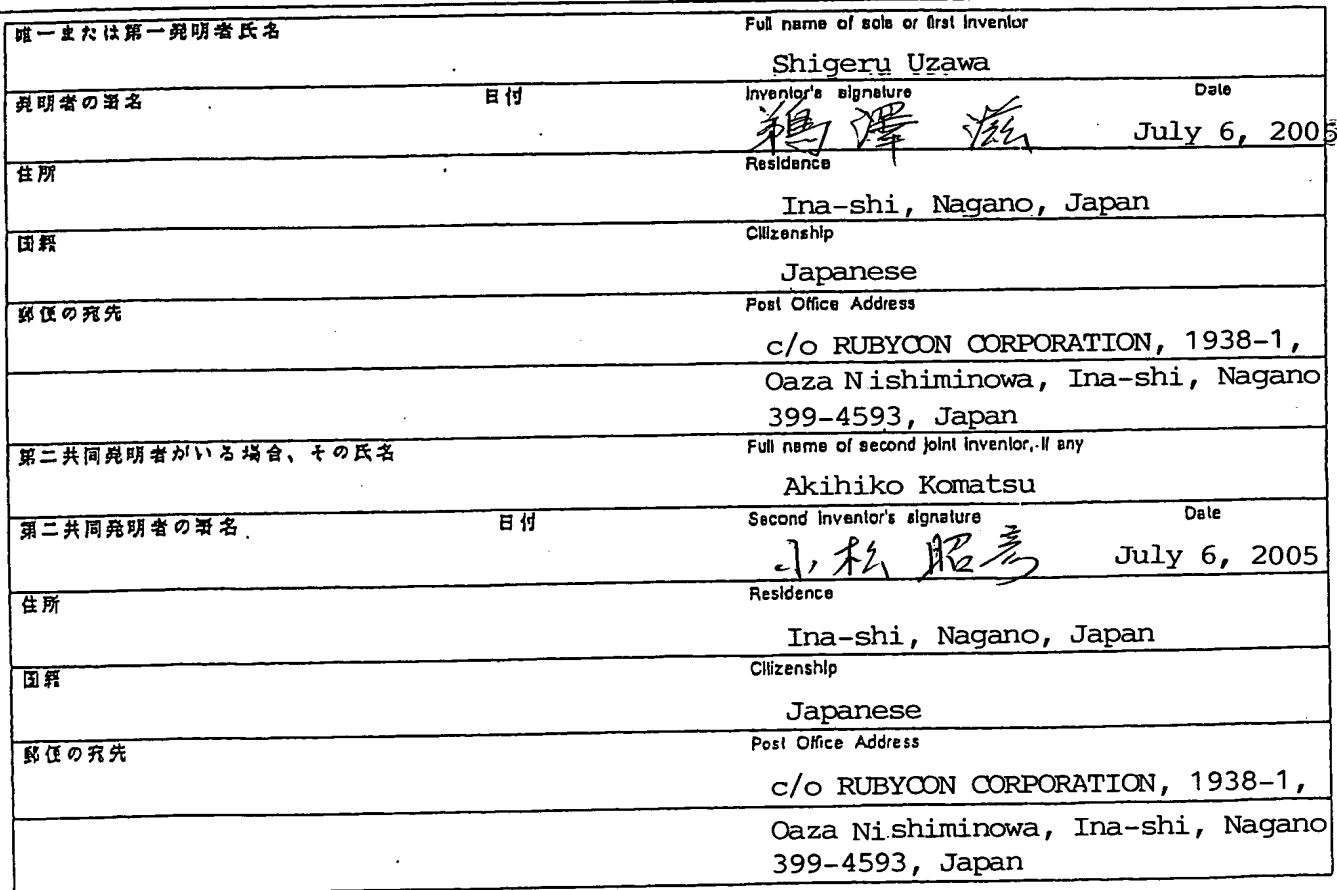 唯一または第一発明者氏名 Full name of sole or first inventor
Shigeru Uzawa
発明者の署名 日付 Inventor's signature Date
鵜澤 滋 July 6, 2005
住所 Residence
Ina-shi, Nagano, Japan
国籍 Citizenship
Japanese
郵便の宛先 Post Office Address
c/o RUBYCON CORPORATION, 1938-1,
Oaza Nishiminowa, Ina-shi, Nagano
399-4593, Japan
第二共同発明者がいる場合、その氏名 Full name of second joint inventor, if any
Akihiko Komatsu
第二共同発明者の署名 日付 Second inventor's signature Date
小松 昭彦 July 6, 2005
住所 Residence
Ina-shi, Nagano, Japan
国籍 Citizenship
Japanese
郵便の宛先 Post Office Address
c/o RUBYCON CORPORATION, 1938-1,
Oaza Nishiminowa, Ina-shi, Nagano
399-4593, Japan